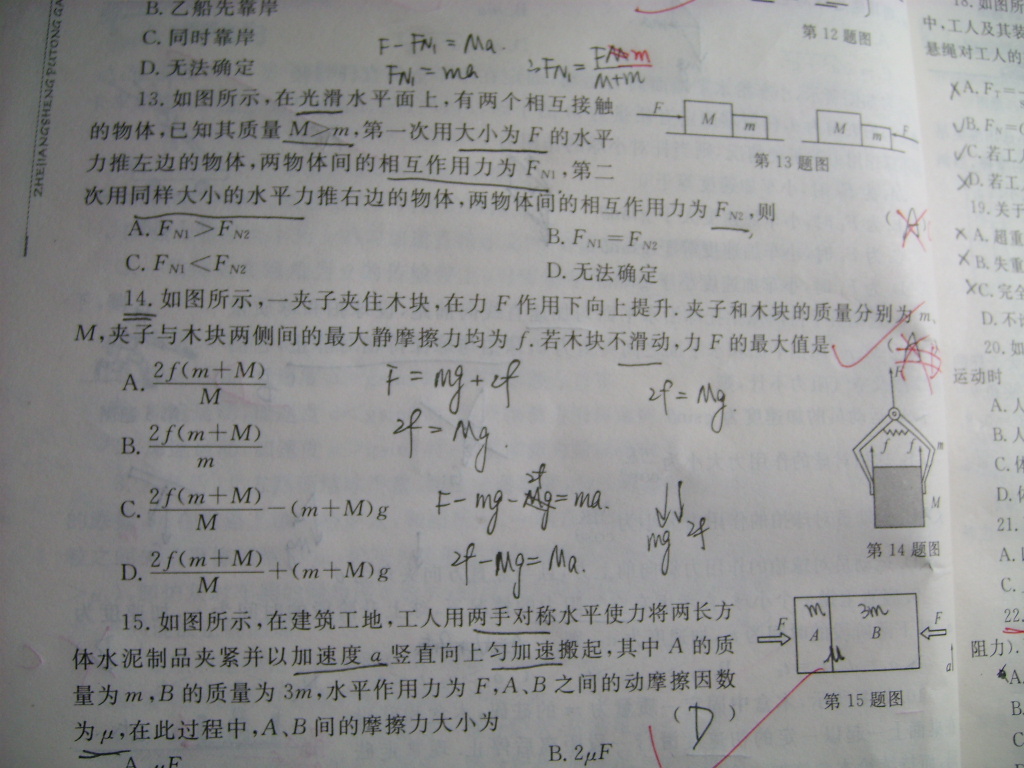 ZHEJIANGSHENG PUTONG GA
B. 乙船先靠岸
C. 同时靠岸
D. 无法确定
第 12 题图
F - FN₁ = Ma.
FN₁ = ma
M+m
13. 如图所示,在光滑水平面上,有两个相互接触
的物体,已知其质量 M>m,第一次用大小为 F 的水平
力推左边的物体,两物体间的相互作用力为 F_N1,第二
次用同样大小的水平力推右边的物体,两物体间的相互作用力为 F_N2,则
F M m
M m F
第 13 题图
A. F_N1>F_N2
B. F_N1=F_N2
C. F_N1<F_N2
D. 无法确定
14. 如图所示,一夹子夹住木块,在力 F 作用下向上提升. 夹子和木块的质量分别为 m、
M,夹子与木块两侧间的最大静摩擦力均为 f. 若木块不滑动,力 F 的最大值是
A. 2f(m+M)/M
B. 2f(m+M)/m
C. 2f(m+M)/M-(m+M)g
D. 2f(m+M)/M+(m+M)g
F = mg+2f
2f = Mg.
2f = Mg
2f
F - mg - Mg = ma.
2f - Mg = Ma.
mg 2f
F
f f
m
M
第 14 题图
15. 如图所示,在建筑工地,工人用两手对称水平使力将两长方
体水泥制品夹紧并以加速度 a 竖直向上匀加速搬起,其中 A 的质
量为 m,B 的质量为 3m,水平作用力为 F,A、B 之间的动摩擦因数
为 μ,在此过程中,A、B 间的摩擦力大小为
(D)
m 3m
F A B F
μ
a
第 15 题图
A. μF
B. 2μF
18. 如图所
中,工人及其装
悬绳对工人的
19. 关于
A. 超重
B. 失重
C. 完全
20. 如
运动时
A. 人
B. 人
C. 体
D. 体
21.
22.
阻力).